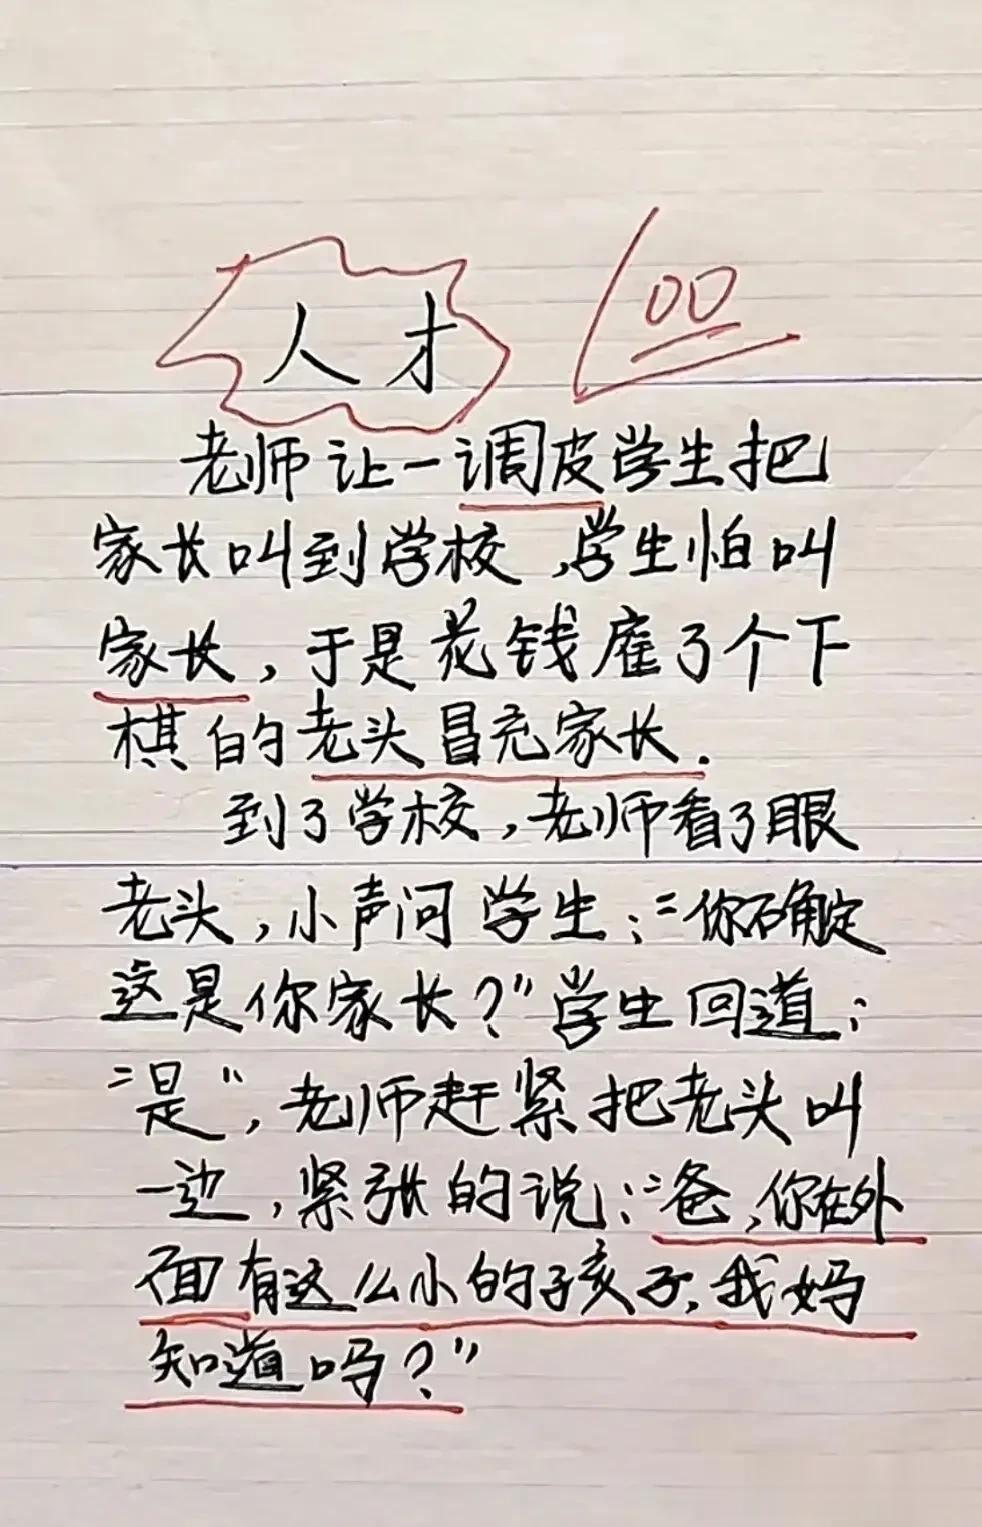 人才 100
老师让一调皮学生把
家长叫到学校,学生怕叫
家长,于是花钱雇了个下
棋的老头冒充家长.
到了学校,老师看了眼
老头,小声问学生:“你确定
这是你家长?”学生回道:
“是”,老师赶紧把老头叫
一边,紧张的说:“爸,你在外
面有这么小的孩子,我妈
知道吗?”